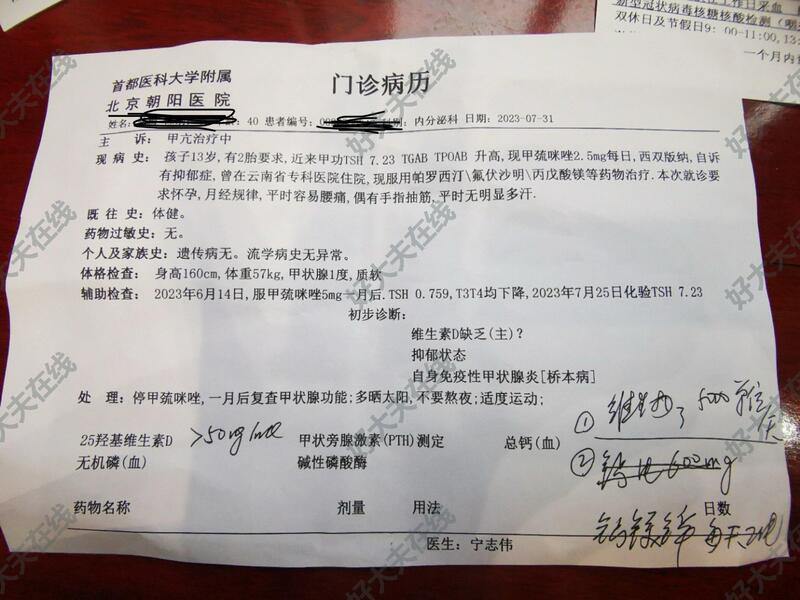 首都医科大学附属
北京朝阳医院
门诊病历
姓名: : 40 患者编号: 科别: 内分泌科 日期: 2023-07-31
主 诉: 甲亢治疗中
现 病 史: 孩子13岁,有2胎要求,近来甲功TSH 7.23 TGAB TPOAB 升高,现甲巯咪唑2.5mg每日,西双版纳,自诉
有抑郁症,曾在云南省专科医院住院,现服用帕罗西汀\氟伏沙明\丙戊酸镁等药物治疗.本次就诊要
求怀孕,月经规律,平时容易腰痛,偶有手指抽筋,平时无明显多汗.
既 往 史: 体健。
药物过敏史: 无。
个人及家族史: 遗传病无。流学病史无异常。
体格检查: 身高160cm,体重57kg,甲状腺1度,质软
辅助检查: 2023年6月14日,服甲巯咪唑5mg一月后.TSH 0.759,T3T4均下降,2023年7月25日化验TSH 7.23
初步诊断:
维生素D缺乏(主)?
抑郁状态
自身免疫性甲状腺炎[桥本病]
处 理: 停甲巯咪唑,一月后复查甲状腺功能;多晒太阳,不要熬夜;适度运动;
① 维生素D3 5000单位/天
25羟基维生素D >50ng/ml 甲状旁腺激素(PTH)测定 总钙(血)
无机磷(血) 碱性磷酸酶 ②
药物名称 剂量 用法 日数
钙镁锌 每天2粒
医生: 宁志伟
工作日采血
新型冠状病毒核糖核酸检测(咽
双休日及节假日9:00-11:00,13
一个月内
好大夫在线